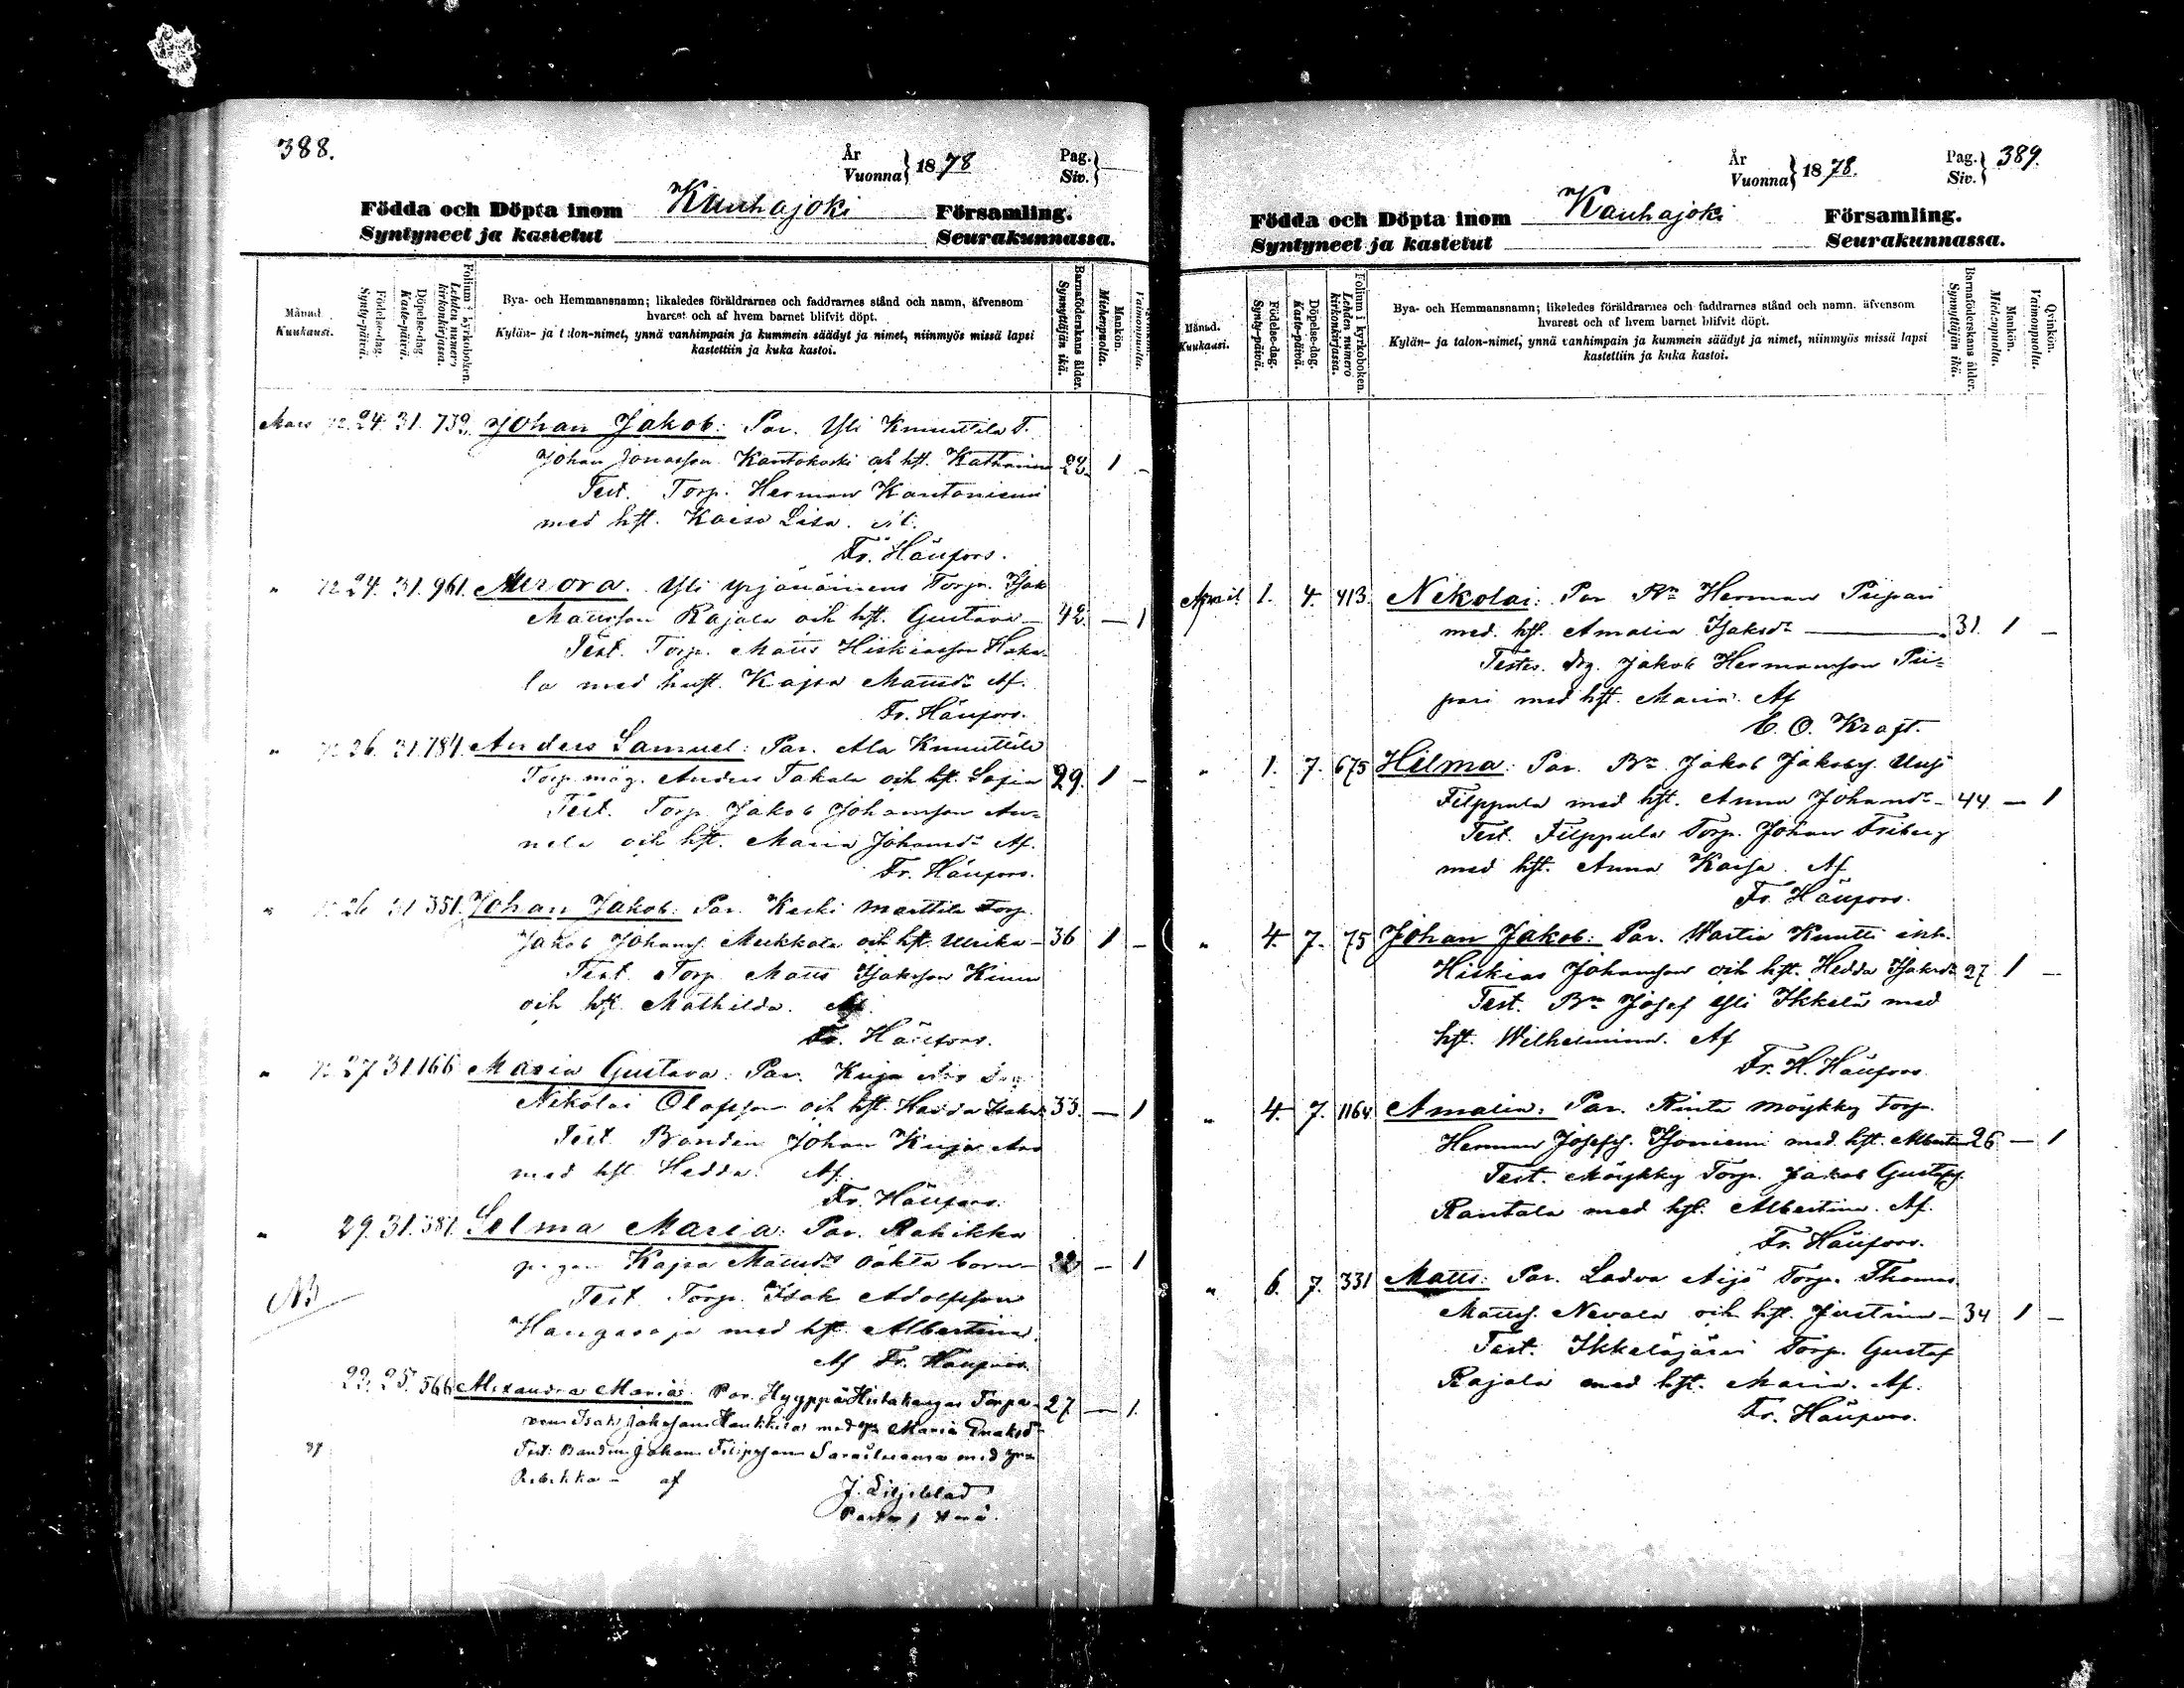 388.
År
Vuonna } 1878
Pag.
Siv. }
Födda och Döpta inom Kauhajoki Församling.
Syntyneet ja kastetut Seurakunnassa.
Månad. Kuukausi.
Födelse-dag. Synty-päivä.
Döpelse-dag Kaste-päivä.
Folium i kyrkoboken. Lehden numero kirkonkirjassa.
Bya- och Hemmansnamn; likaledes föräldrarnes och faddrarnes stånd och namn, äfvensom
hvarest och af hvem barnet blifvit döpt.
Kylän- ja talon-nimet, ynnä vanhimpain ja kummein säädyt ja nimet, niinmyös missä lapsi
kastettiin ja kuka kastoi.
Barnaföderskans ålder. Synnyttäjän ikä.
Mankön. Miehenpuolta.
Vaimonpuolta.
Mars 24. 31. 732. Johan Jakob: Par. Yli Knuuttila T.
Johan Jonasson Kantokoski och hst. Katharina 28. 1 -
Test. Torp. Herman Kantoniemi
med hst. Kaisa Lisa.
Fr. Häufors.
" 24. 31. 961. Aurora. Yli Yrjänäinens Torp. Isak
Mattsson Rajala och hst. Gustava - 42 - 1
Test. Torp. Matts Hiskiasson Haka-
la med hust. Kajsa Mattsdr Af.
Fr. Häufors.
" 26. 31. 784. Anders Samuel: Par. Ala Knuuttila
Torp. måg. Anders Takala och hst. Sofia 29. 1 -
Test. Torp. Jakob Johansson An-
nala och hst. Maria Johansdr Af.
Fr. Häufors.
" 26 31 351. Johan Jakob: Par. Keski Marttila Torp.
Jakob Johanss. Mukkala och hst. Ulrika - 36 1 -
Test. Torp. Matts Isaksson Kiuru
och hst. Mathilda. Af.
Fr. Häufors.
" 27 31. 166 Maria Gustava: Par. Kuja Aro
Nikolai Olofsson och hst. Hedda Isaksdr 33. - 1
Test. Bonden Johan Kuja Aro
med hst Hedda. Af.
Fr. Häufors.
" 29. 31. 387. Selma Maria: Par. Rahikka
pigan Kajsa Mattsdr oäkta barn - 22 - 1
NB
Test. Torp. Isak Adolfsson
Hangasoja med hst. Albertina.
Af Fr. Häufors.
22. 25. 566 Alexandra Maria: Par. Hyyppä Hiitakangas Torpa- 27 - 1.
ren Isak Jakobsson Kaukkila med Maria Enaksdr
Test: Bonden Johan Filipsson med
Rebekka - af
J. Liljeblad
389.
År
Vuonna } 1878.
Pag.
Siv. }
Födda och Döpta inom Kauhajoki Församling.
Syntyneet ja kastetut Seurakunnassa.
Månad. Kuukausi.
Födelse-dag. Synty-päivä.
Döpelse-dag. Kaste-päivä.
Folium i kyrkoboken. Lehden numero kirkonkirjassa.
Bya- och Hemmansnamn; likeledes föräldrarnes och faddrarnes stånd och namn. äfvensom
hvarest och af hvem barnet blifvit döpt.
Kylän- ja talon-nimet, ynnä vanhimpain ja kummein säädyt ja nimet, niinmyös missä lapsi
kastettiin ja kuka kastoi.
Barnaföderskans ålder. Synnyttäjän ikä.
Mankön. Miehenpuolta.
Qvinkön. Vaimonpuolta.
April 1. 4. 413. Nikolai: Par Bn Herman Piipari
med. hst. Amalia Isaksdr 31. 1 -
Testes. drg. Jakob Hermansson Pii-
pari med hst. Maria. Af
E. O. Kraft.
" 1. 7. 675 Hilma: Par. Bn Jakob Jakobss. Uusi
Filppula med hst. Anna Johansdr - 44 - 1
Test. Filppula Torp. Johan Friberg
med hst. Anna Kaisa. Af
Fr. Häufors.
" 4. 7. 75 Johan Jakob: Par. Wartia Knutti inh.
Hiskias Johansson och hst. Hedda Isaksdr 27 1 -
Test. Bn Josef Yli Ikkelä med
hst. Wilhelmina. Af
Fr. H. Häufors
" 4. 7. 1164 Amalia: Par. Rinta Möykky Torp.
Herman Josefss. Isoniemi med hst. Albertina 26 - 1
Test. Möykky Torp. Jakob Gustafss.
Rantala med hst. Albertina. Af.
Fr. Häufors.
" 6. 7. 331 Matts: Par. Ladva Äijö Torp. Thomas
Mattss. Nevala och hst. Justina - 34 1 -
Test. Ikkeläjärvi Torp. Gustaf
Rajala med hst. Maria. Af.
Fr. Häufors.